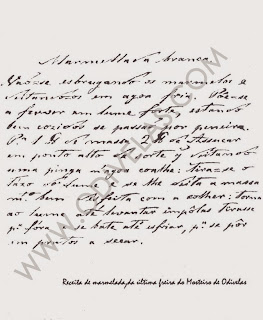 Marmellada branca
Vaõ-se esbrugando os marmelos e
deitando-os em agoa fria. Põe-se
a ferver em lume forte estando
bem cozidos se passa por peneira.
Pª 1 K massa 2 K de assucar
em ponto alto de sorte q deitando
uma pinga n'agoa coalhe: tira-se o
taxo do lume e se lhe deita a massa
mº bem desfeita com a colher: torna
ao lume até levantar impôlas tira-se
pª fóra e se bate até esfriar, pª se pôr
em pratos a secar.
Receita de marmelada da última freira do Mosteiro de Odivelas
WWW.ODIVELAS.COM